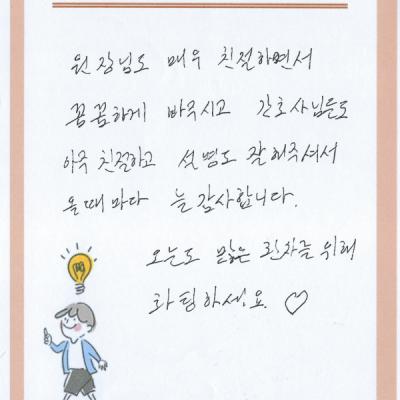 원장님도 매우 친절하면서
꼼꼼하게 봐주시고 간호사님들도
아주 친절하고 설명도 잘해주셔서
올때마다 늘 감사합니다.
오늘도 많은 환자를 위해
화팅하세요 ♡